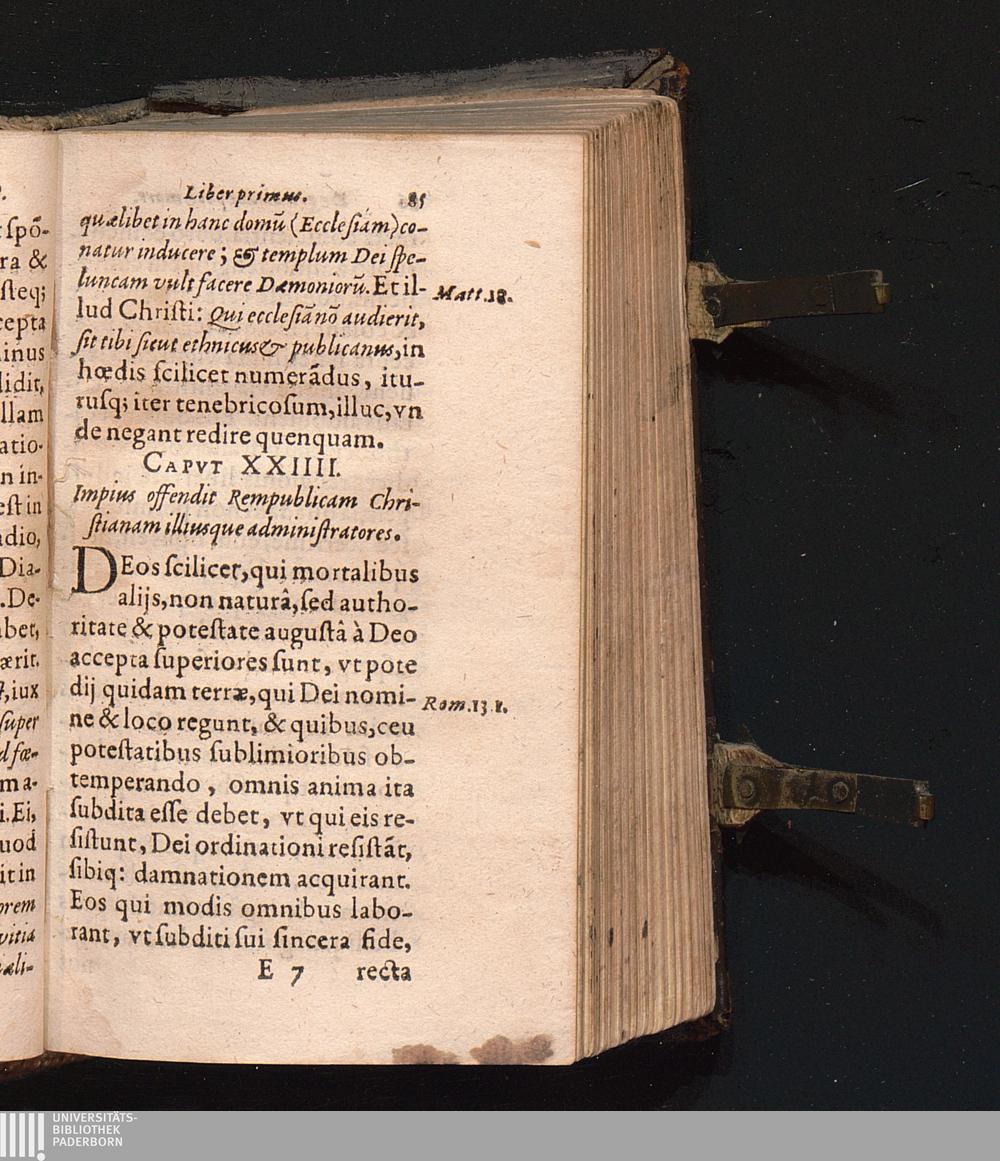 Liber primus. 85
quælibet in hanc domū (Ecclesiam) co-
natur inducere; & templum Dei spe-
luncam vult facere Dæmoniorū. Et il-
lud Christi: Qui ecclesiā nō audierit,
sit tibi sicut ethnicus & publicanus, in
hœdis scilicet numerādus, itu-
rusq; iter tenebricosum, illuc, vn
de negant redire quenquam.
Matt. 18.
CAPVT XXIIII.
Impius offendit Rempublicam Chri-
stianam illiusque administratores.
DEos scilicet, qui mortalibus
alijs, non naturâ, sed autho-
ritate & potestate augustâ à Deo
accepta superiores sunt, vt pote
dij quidam terræ, qui Dei nomi-
ne & loco regunt, & quibus, ceu
potestatibus sublimioribus ob-
temperando, omnis anima ita
subdita esse debet, vt qui eis re-
sistunt, Dei ordinationi resistāt,
sibiq: damnationem acquirant.
Eos qui modis omnibus labo-
rant, vt subditi sui sincera fide,
Rom. 13. 1.
E 7 recta
spō-
ra &
steq;
cepta
inus
lidit,
llam
atio-
n in-
est in
adio,
Dia-
. De-
abet,
ærit.
, iux
super
d fœ-
ma-
i. Ei,
uod
it in
orem
vitia
æli-
UNIVERSITÄTS-
BIBLIOTHEK
PADERBORN